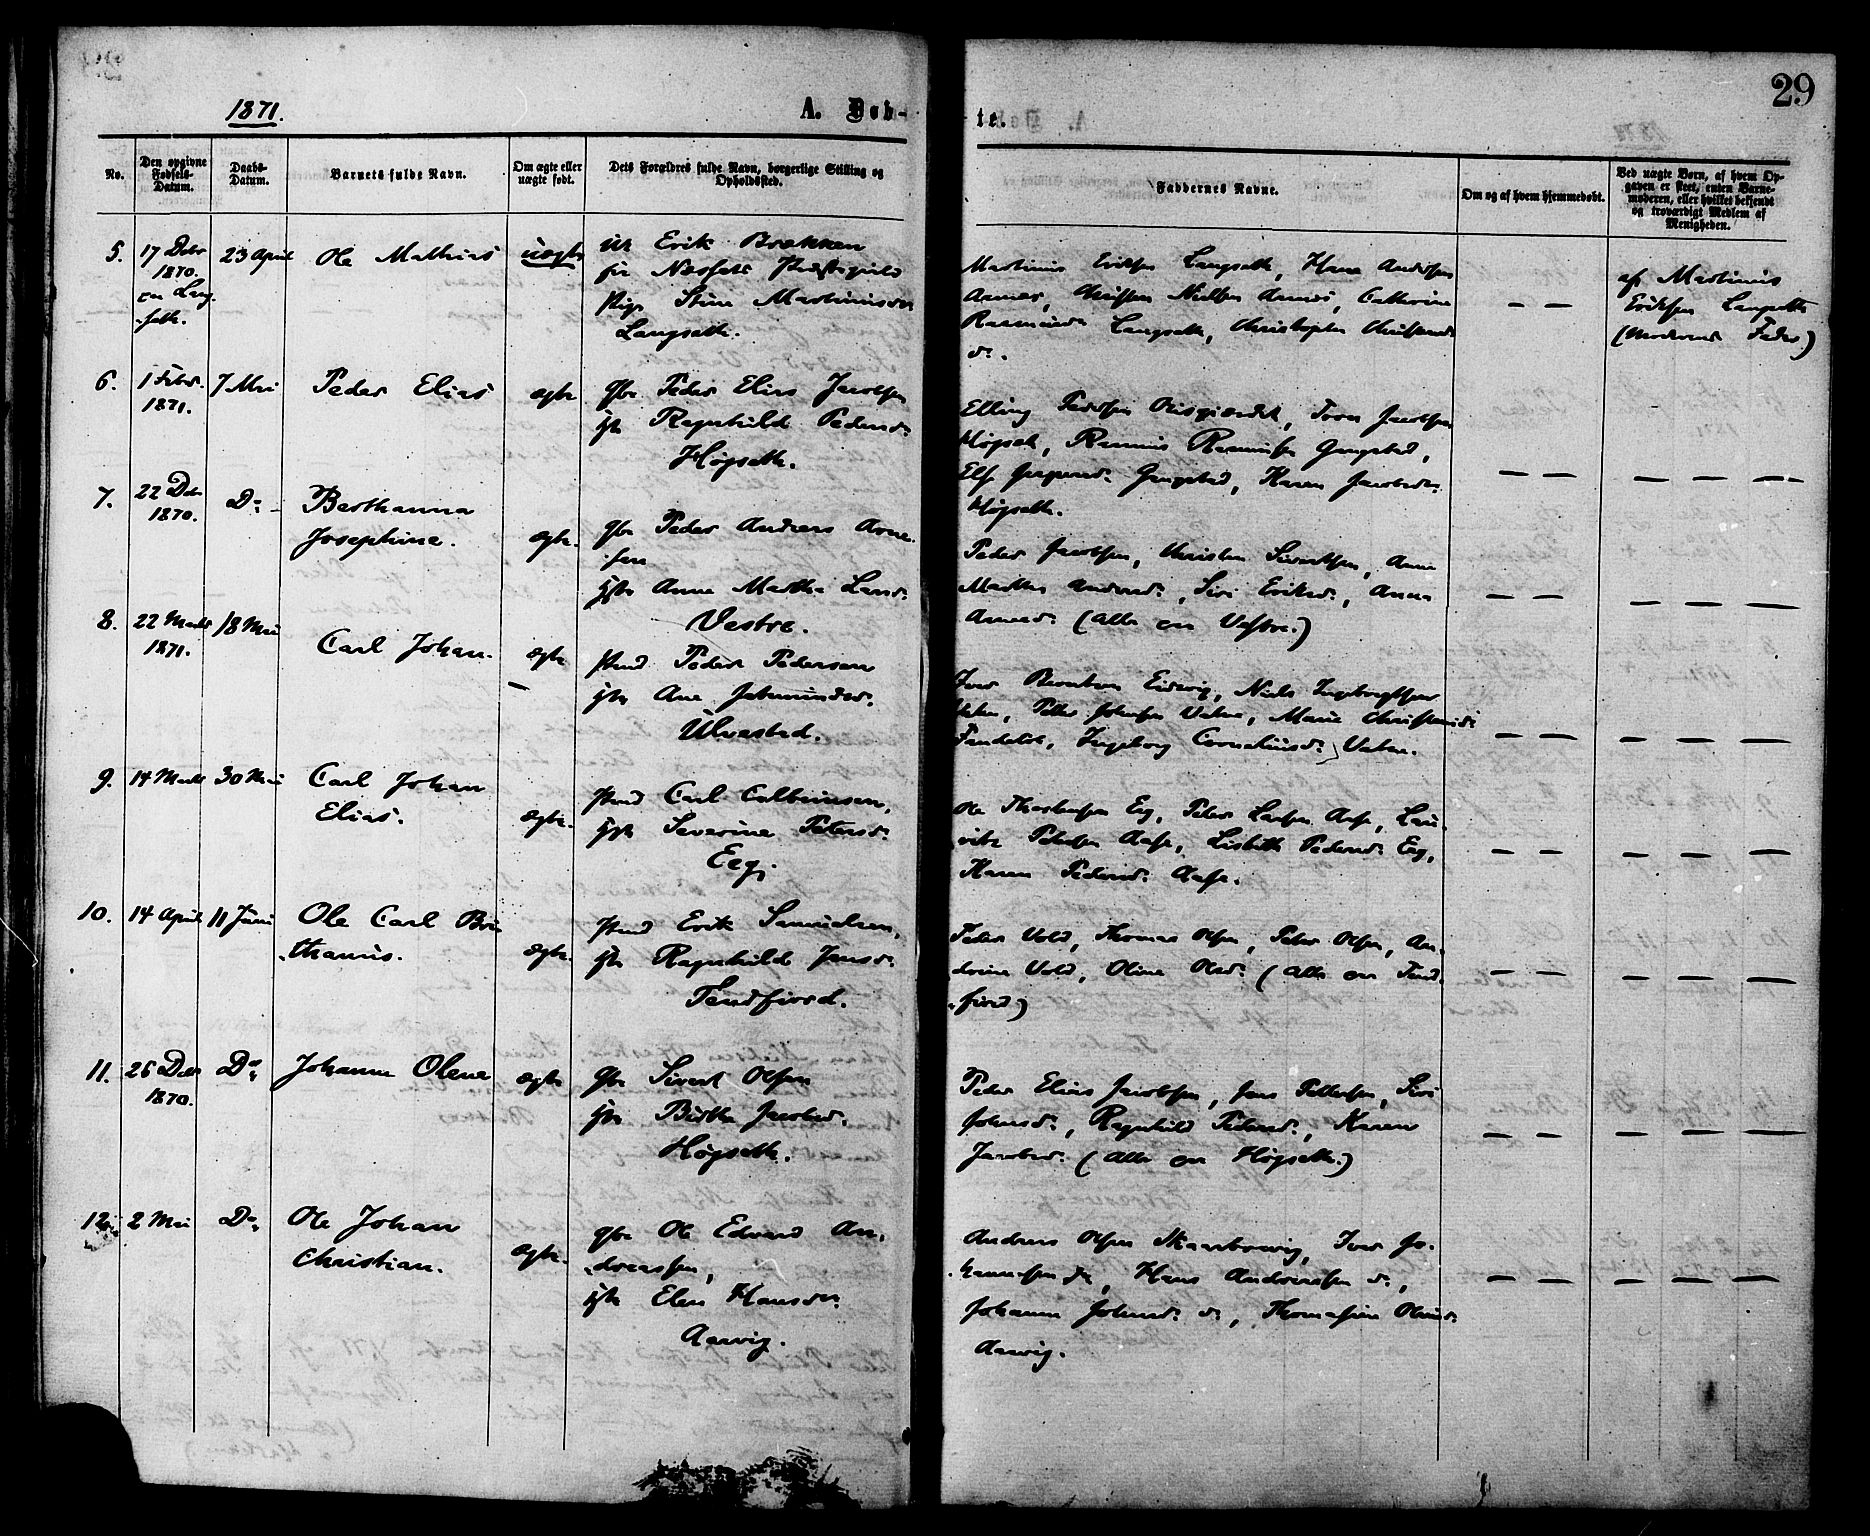 29
1871.
A. Døb-
te.
No.
Den opgivne Fødsels-Datum.
Daabs-Datum.
Barnets fulde Navn.
Om ægte eller uægte født.
Dets Forældres fulde Navn, borgerlige Stilling og Opholdssted.
Faddernes Navne.
Om og af hvem hjemmedøbt.
Ved uægte Børn, af hvem Opgaven er skeet, enten Barnemoderen, eller hvilket bekjendt og troværdigt Medlem af Menigheden.
5.
17 Debr
1870.
paa Lang-
seth.
23 April
Ole Mathias
uægte
Erik Brækken
fr Næssets Præstegield
pige Stine Martinusdr
Langseth.
Martinus Eriksen Langseth, Hans Andersen
Aarnes, Christen Nielsen Aarnes, Cathrine
Rasmusd: Langseth, Christopher
do.
— —
af Martinus
Eriksen Langseth
(Moderens Fader)
6.
1 Febr.
1871.
7 Mai
Peder Elias
ægte
Gbr Peder Elias Jacobsen
Ragnhild Pedersd:
Høgseth.
Elling Pedersen Jacobsen
Høgseth, Rasmus Rasmussen Gangstad,
Gangstad, Karen Jacobsdr
Høgseth.
— —
— — —
7.
22 Debr
1870.
Do
Berthanna
Josephine.
ægte.
Gbr Peder Andreas Arne-
sen
Anne Martha Larsd:
Vestre.
Peder Jacobsen, Christen Sivertsen, Anne
Martha Andersd:, Siri Eriksd:, Anne
Arnesd: (Alle paa Vestre.)
— —
— — —
8.
22 Marts
1871.
18 Mai
Carl Johan.
ægte
Peder Pedersen
Ane Jetmundsd:
Ulvestad.
Iver Berntsen Eidsvig, Niels Ingebrigtsen
Vatne, Peder Johnsen Vatne, Marie Christensd:
Ingeborg Corneliusd: Vatne.
— —
— — —
9.
14 Marts
30 Mai
Carl Johan
Elias.
ægte.
Carl Colbeinsen,
Severine Petersd:
Eeg.
Ole Thorstensen Eeg, Peder Larsen Aase, Lau-
ritz Pedersen Aase, Lisbeth Pedersd: Eeg,
Karen Pedersd: Aase.
— —
— — —
10.
14 April
11 Juni
Ole Carl Bri-
thanus.
ægte.
Erik Samuelsen,
Ragnhilde Jensd:
Tendfjord.
Peder Vold, Thomas Olsen, Peter Olsen, An-
drine Vold, Oline Olsd: (Alle paa Tend-
fjord)
— —
— — —
11.
26 Debr
1870.
Do
Johanne Olene
ægte
Gbr Sivert Olsen
Birthe Jacobsd:
Høgseth.
Peder Elias Jacobsen, Jens Pettersen, Siri
Johnsd:, Ragnhild Pedersd:, Karen
Jacobsd: (Alle paa Høgseth.)
— —
— — —
12.
2 Mai
Do
Ole Johan
Christian.
ægte.
Gbr Ole Edvard An-
dreassen,
Elen Hansdr.
Aarvig.
Andreas Olsen Skarbøvig, Iver Jo-
hannesen do, Hans Andreassen do,
Johanne Johnsd: do, Thomasine Olausd:
Aarvig.
— —
— — —